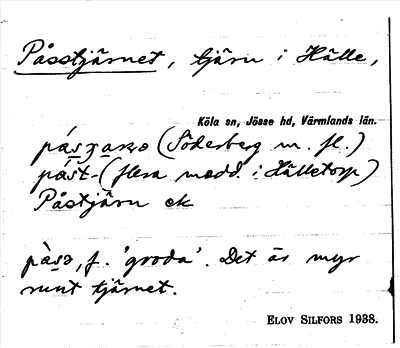 Påsstjärnet, tjärn i Hälle,
Köla sn, Jösse hd, Värmlands län.
(Söderberg m. fl.)
påst- (flera medd. i Hälletorp)
Påstjärn ek
f. 'groda'. Det är myr
runt tjärnet.
ELOV SILFORS 1938.